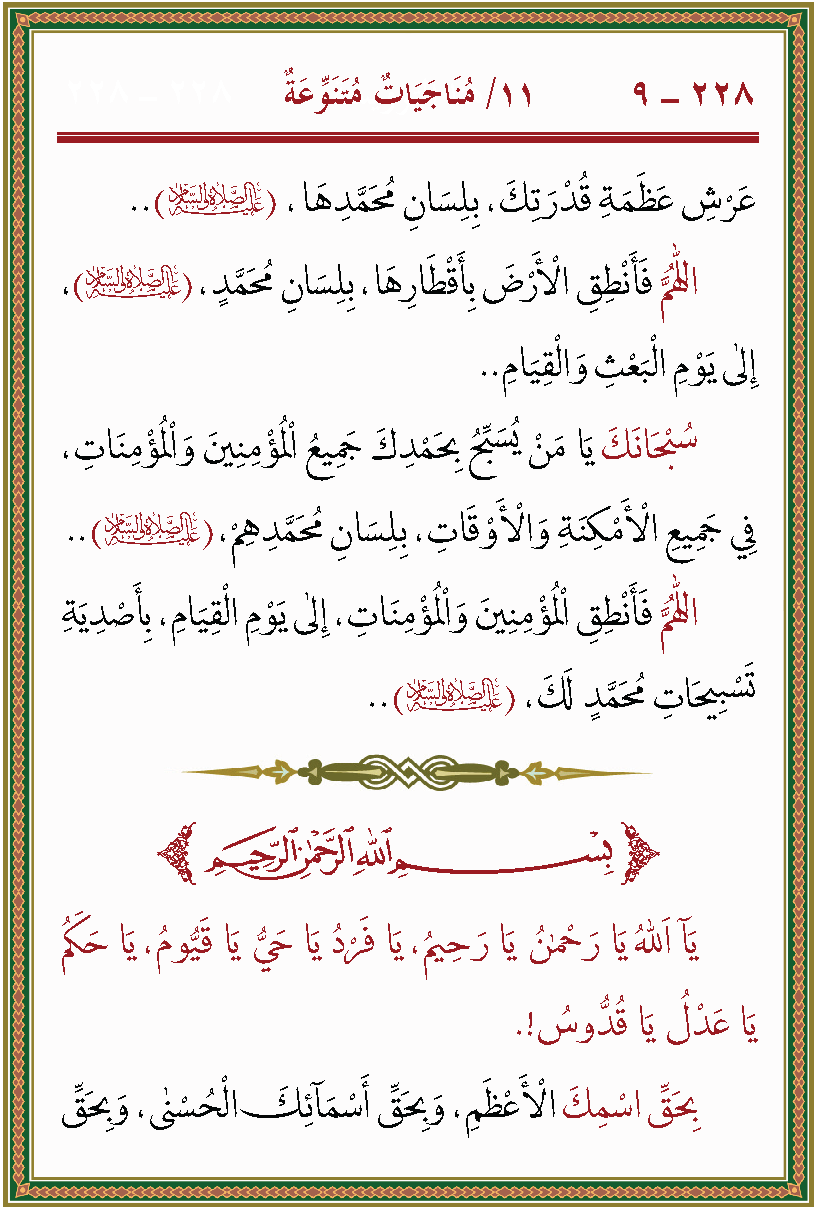 ٢٢٨ - ٩ ١١/ مُنَاجَيَاتٌ مُتَنَوِّعَةٌ ٢٢٨ - ٢٢٨
عَرْشِ عَظَمَةِ قُدْرَتِكَ، بِلِسَانِ مُحَمَّدِهَا ، (عَلَيْهِ الصَّلَاةُ وَالسَّلَامُ)..
اَللّٰهُمَّ فَأَنْطِقِ الْأَرْضَ بِأَقْطَارِهَا، بِلِسَانِ مُحَمَّدٍ، (عَلَيْهِ الصَّلَاةُ وَالسَّلَامُ)،
إِلٰى يَوْمِ الْبَعْثِ وَالْقِيَامِ..
سُبْحَانَكَ يَا مَنْ يُسَبِّحُ بِحَمْدِكَ جَمِيعُ الْمُؤْمِنِينَ وَالْمُؤْمِنَاتِ،
فِي جَمِيعِ الْأَمْكِنَةِ وَالْأَوْقَاتِ، بِلِسَانِ مُحَمَّدِهِمْ، (عَلَيْهِ الصَّلَاةُ وَالسَّلَامُ)..
اَللّٰهُمَّ فَأَنْطِقِ الْمُؤْمِنِينَ وَالْمُؤْمِنَاتِ، إِلٰى يَوْمِ الْقِيَامِ، بِأَصْدِيَةِ
تَسْبِيحَاتِ مُحَمَّدٍ لَكَ، (عَلَيْهِ الصَّلَاةُ وَالسَّلَامُ)..
بِسْمِ اللّٰهِ الرَّحْمٰنِ الرَّحِيمِ
يَآ اَللّٰهُ يَا رَحْمٰنُ يَا رَحِيمُ، يَا فَرْدُ يَا حَيُّ يَا قَيُّومُ، يَا حَكَمُ
يَا عَدْلُ يَا قُدُّوسُ!.
بِحَقِّ اسْمِكَ الْأَعْظَمِ، وَبِحَقِّ أَسْمَآئِكَ الْحُسْنٰى، وَبِحَقِّ